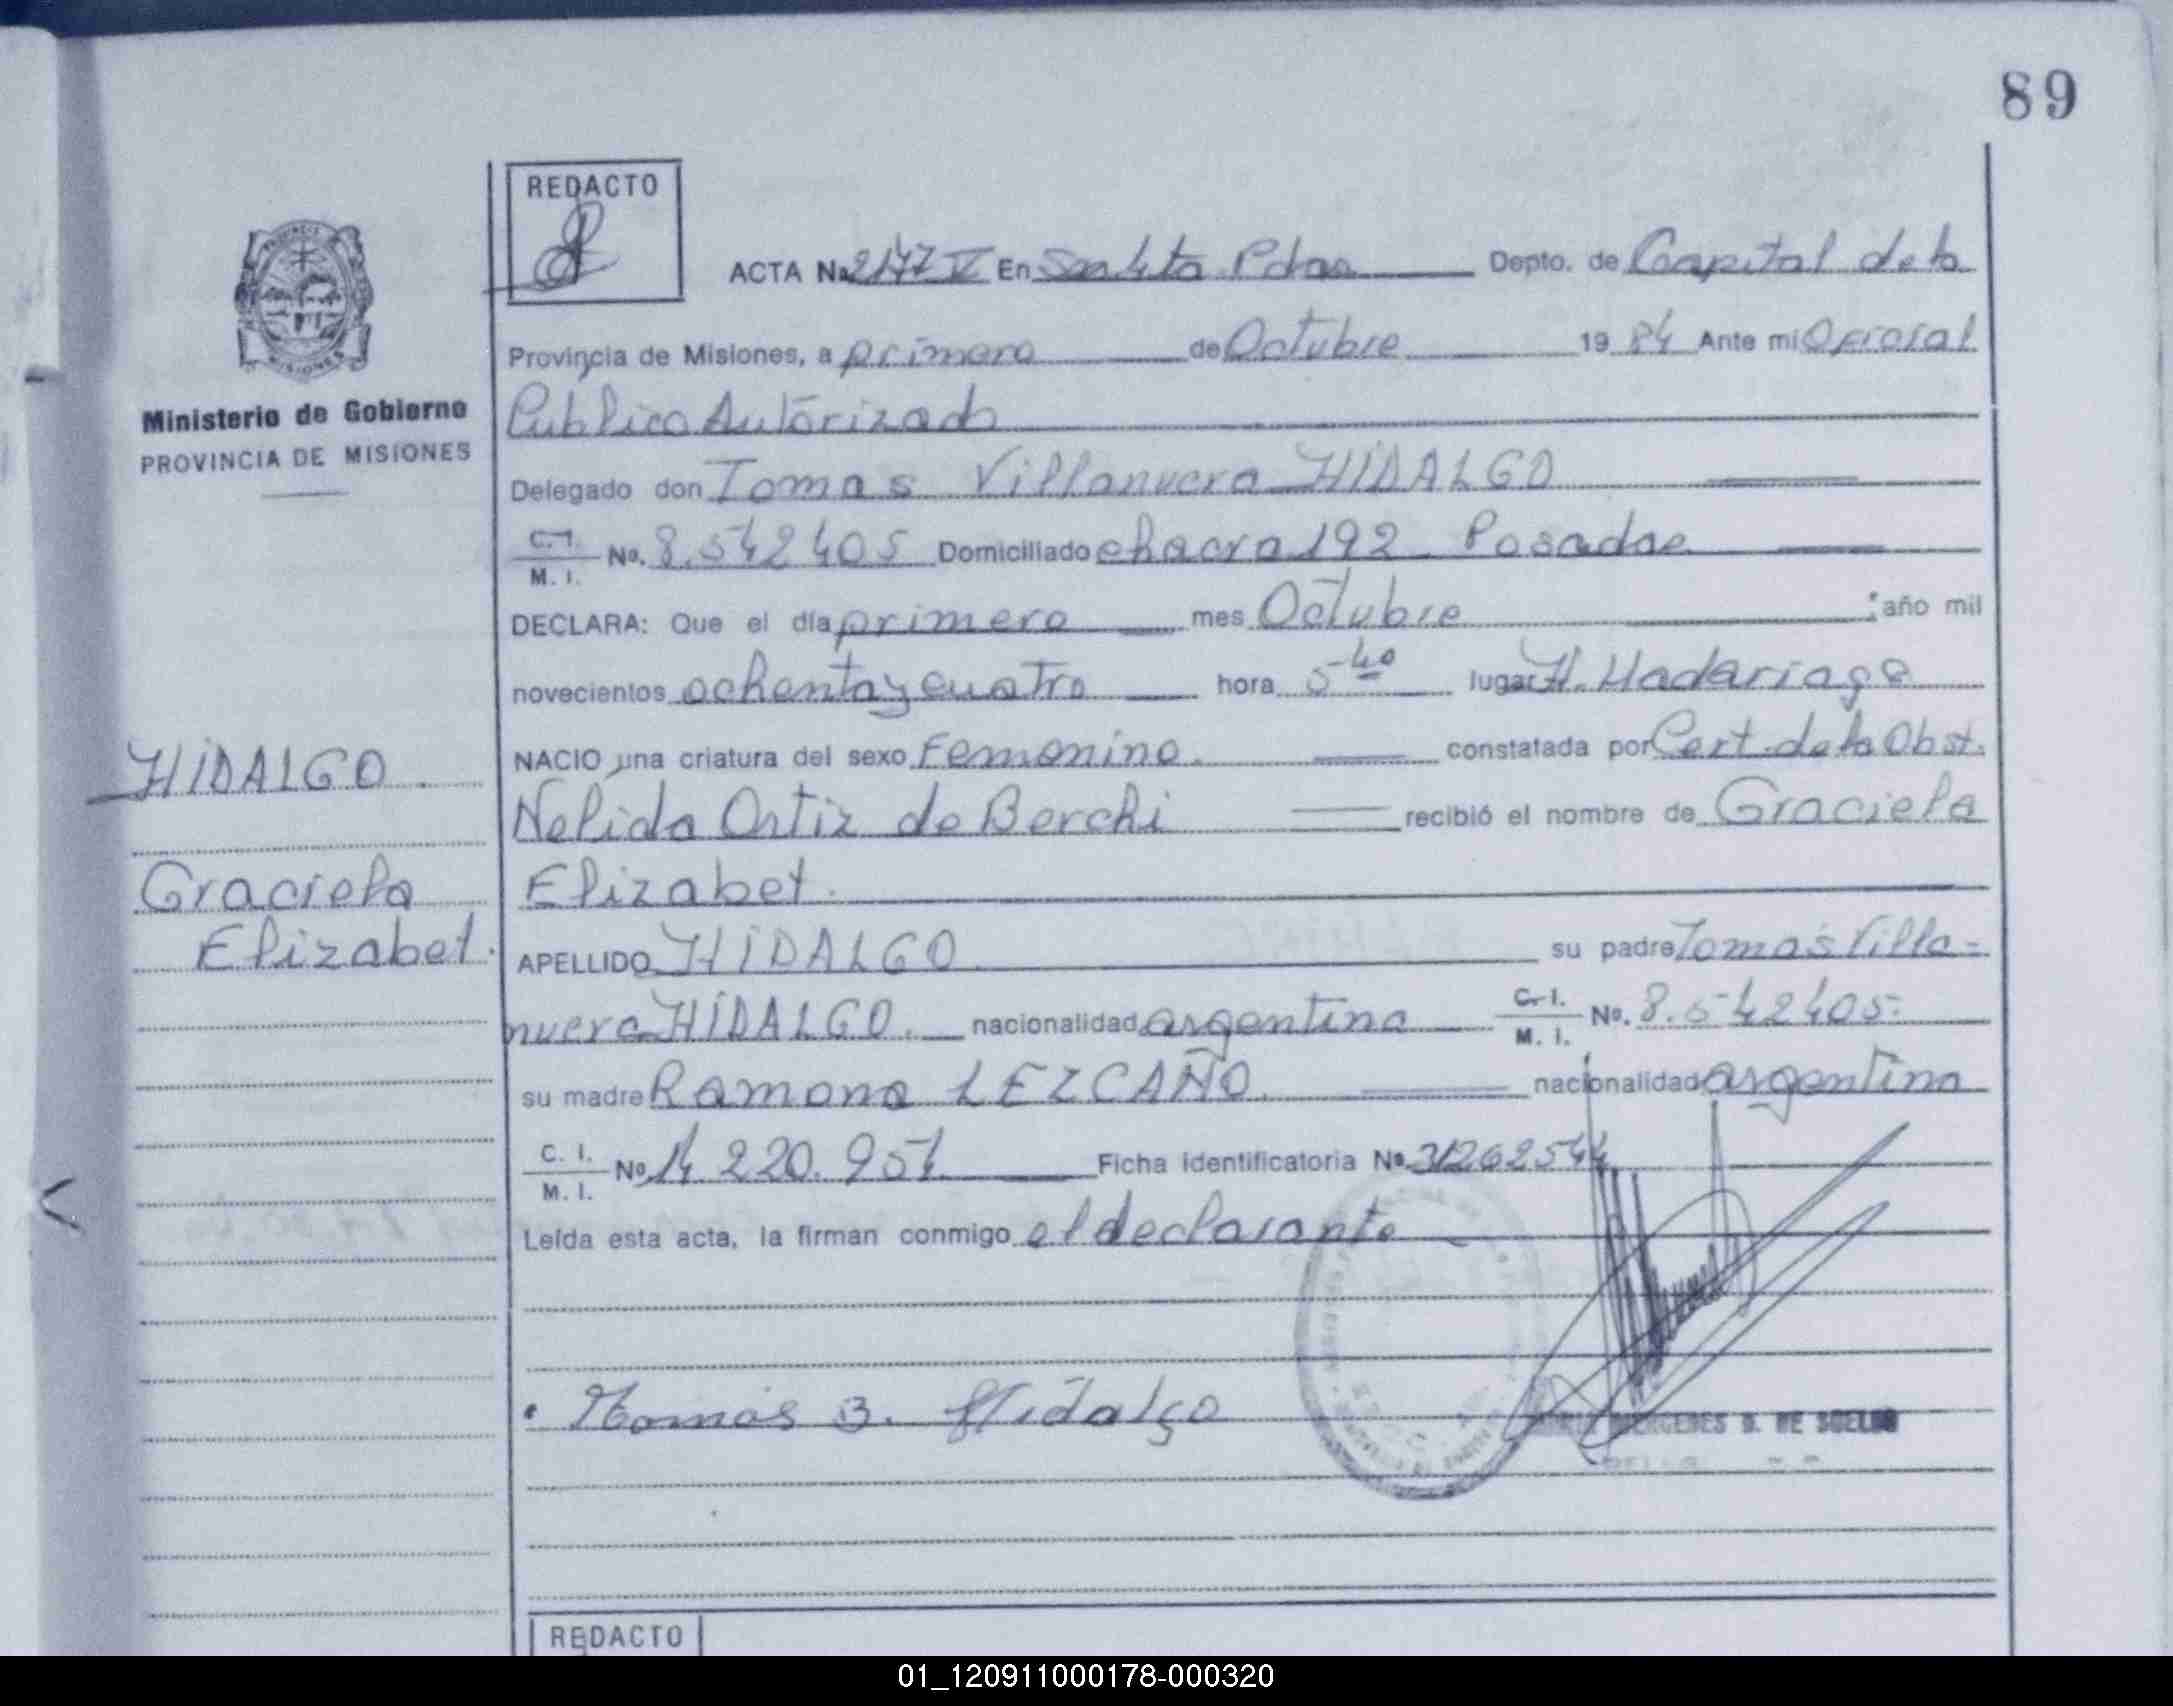 89
REDACTO
ACTA No 2147 V En Sta Pdas Depto. de Capital de la
Provincia de Misiones, a primero de Octubre 19 84 Ante mi Oficial
Publico Autorizado
Ministerio de Gobierno
PROVINCIA DE MISIONES
Delegado don Tomas Villanueva HIDALGO
C. I.
M. I. No. 8.542405 Domiciliado chacra 192 Posadas
DECLARA: Que el día primero mes Octubre año mil
novecientos ochenta y cuatro hora 5-40 lugar H. Madariaga
HIDALGO
NACIO una criatura del sexo Femenino. constatada por Cert. de la Obst.
Nelida Ortiz de Berchi recibió el nombre de Graciela
Graciela
Elizabet.
Elizabet.
APELLIDO HIDALGO su padre Tomas Villa-
nueva HIDALGO. nacionalidad argentina C. I.
M. I. No. 8.542405.
su madre Ramona LEZCAÑO. nacionalidad argentina
C. I.
M. I. No 14.220.951 Ficha identificatoria No 31262544
Leída esta acta, la firman conmigo el declarante
Tomas B. Hidalgo
MERCEDES DE
REDACTO
01_120911000178-000320